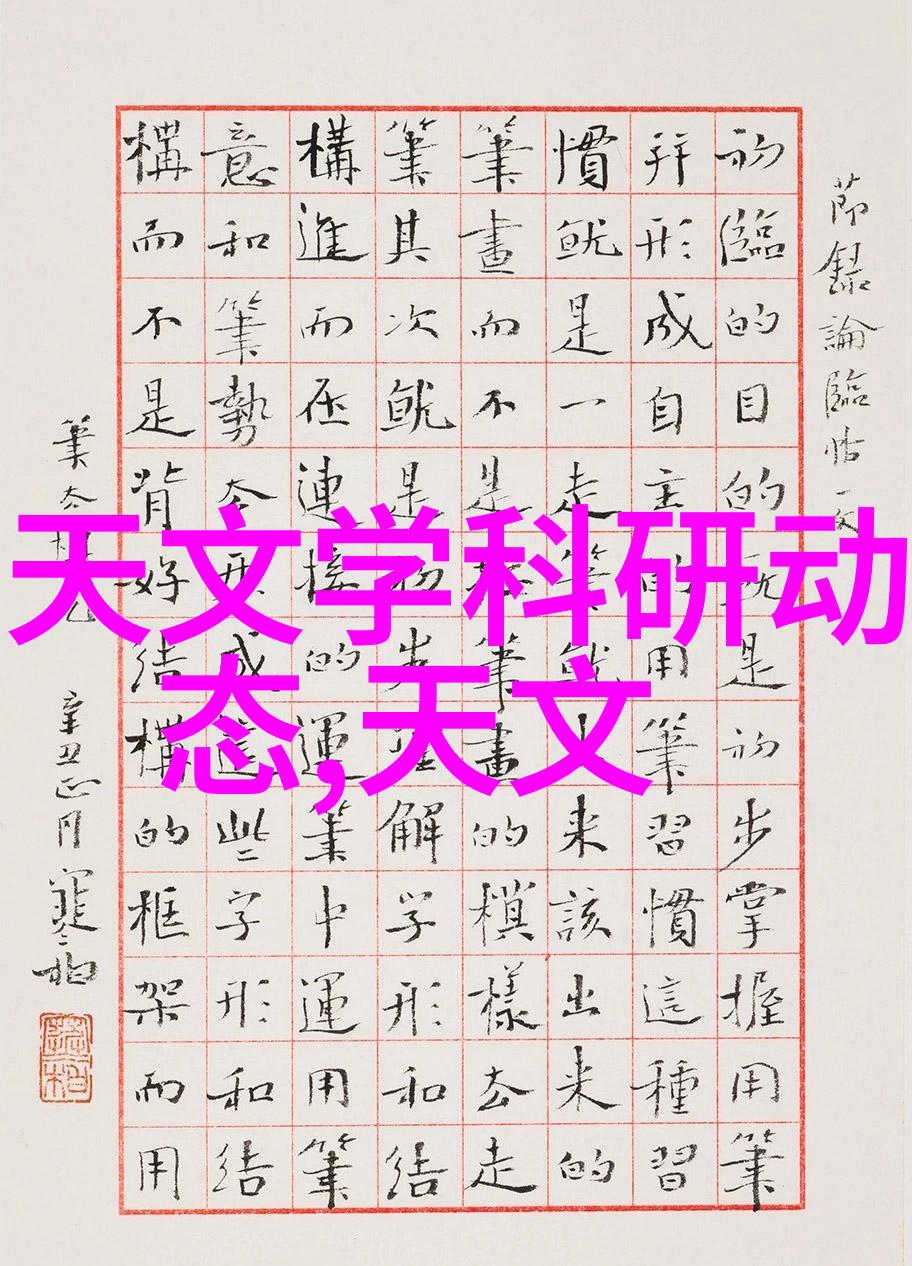 天文学科研动
态,天文
節録論臨帖一文
初臨的目的就是初步掌握用筆
并形成自主的用筆習慣這種習
慣就是一走筆就來該出來的
筆畫而不是筆畫的模樣去走
筆其次就是初步理解字形和結
構進而在連接的運筆中運用筆
意和筆勢去形成這些字形和結
構而不是背好結構的框架而用
筆去
辛丑正月